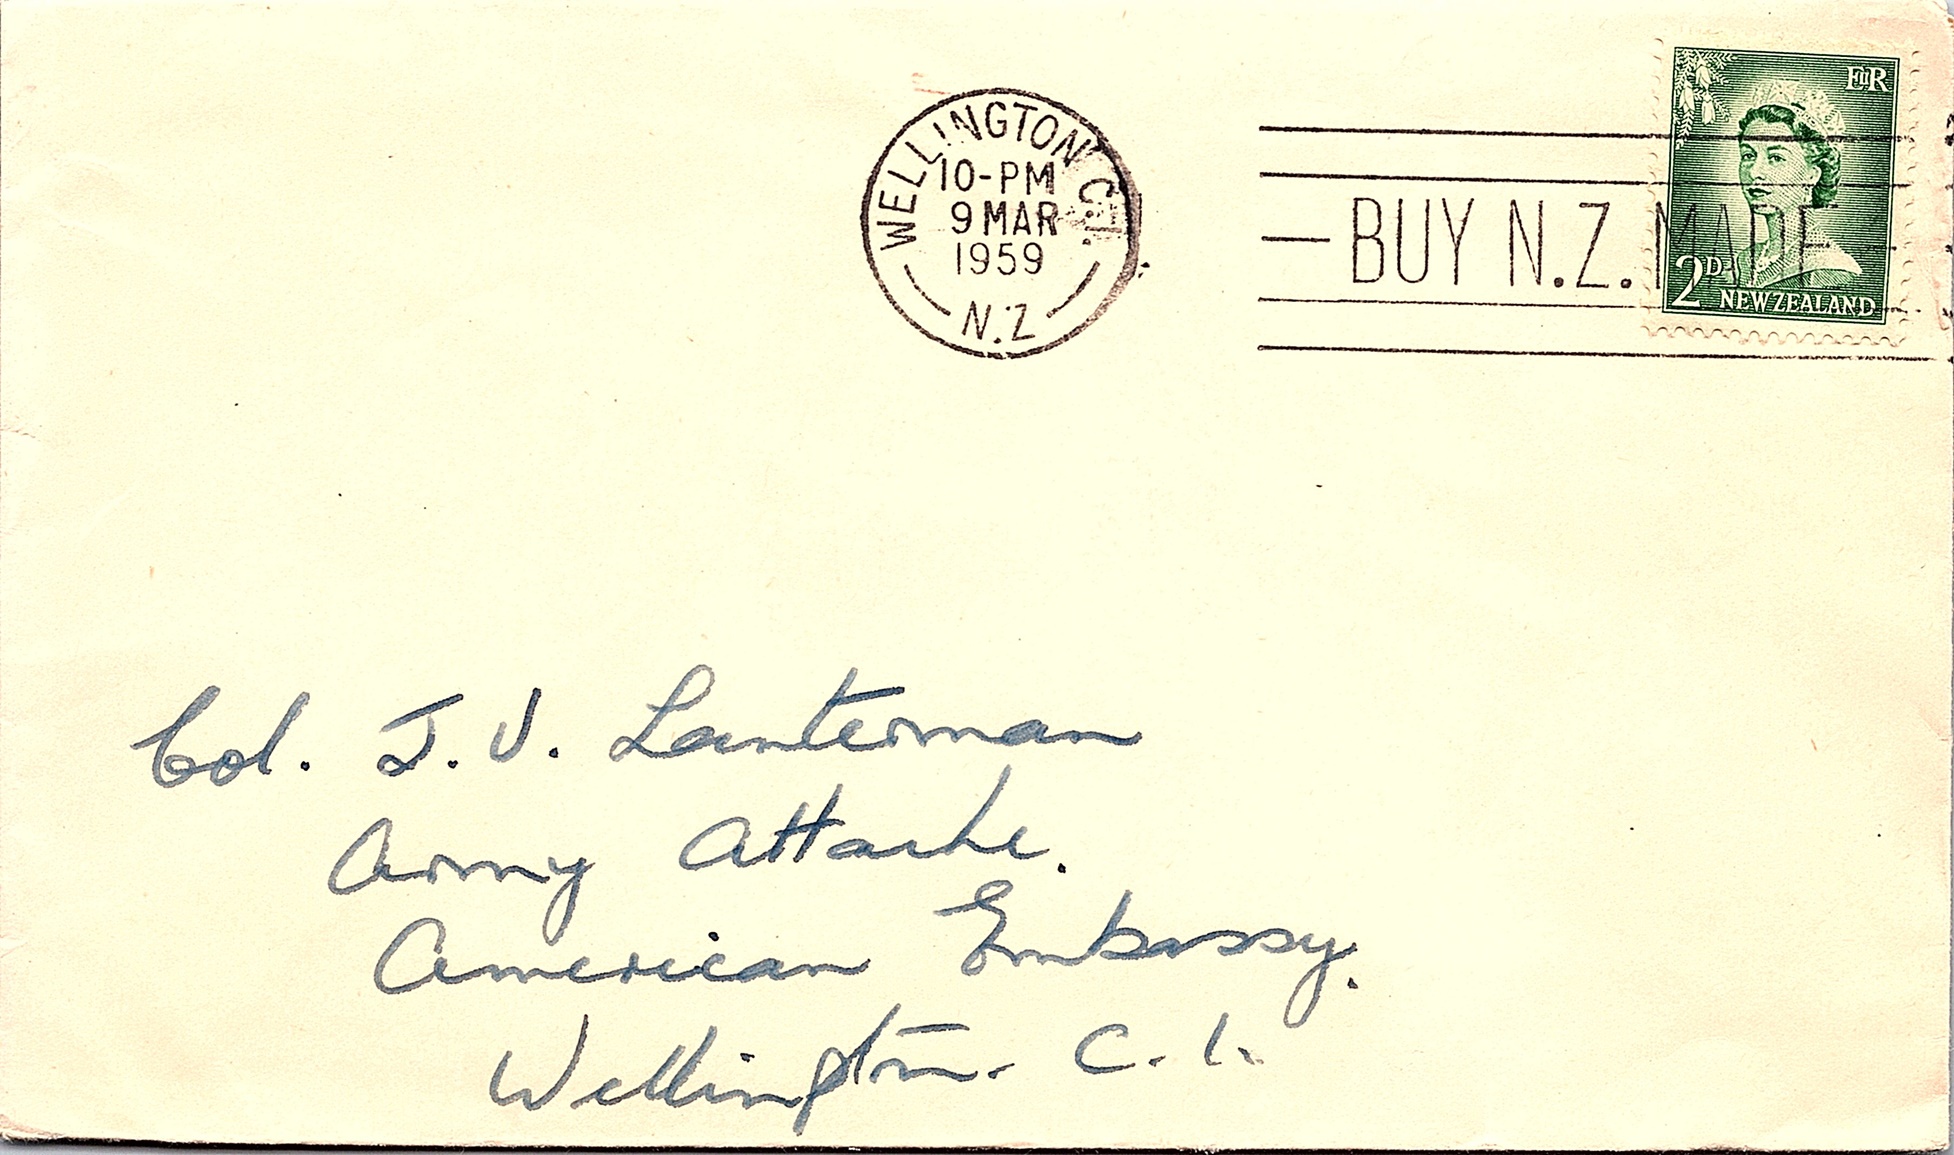 WELLINGTON C.1.
10-PM
9 MAR
1959
N.Z
BUY N.Z. MADE
EIIR
2D
NEW ZEALAND
Col. J. V. Lanterman
Army Attache.
American Embassy.
Wellington. C. 1.